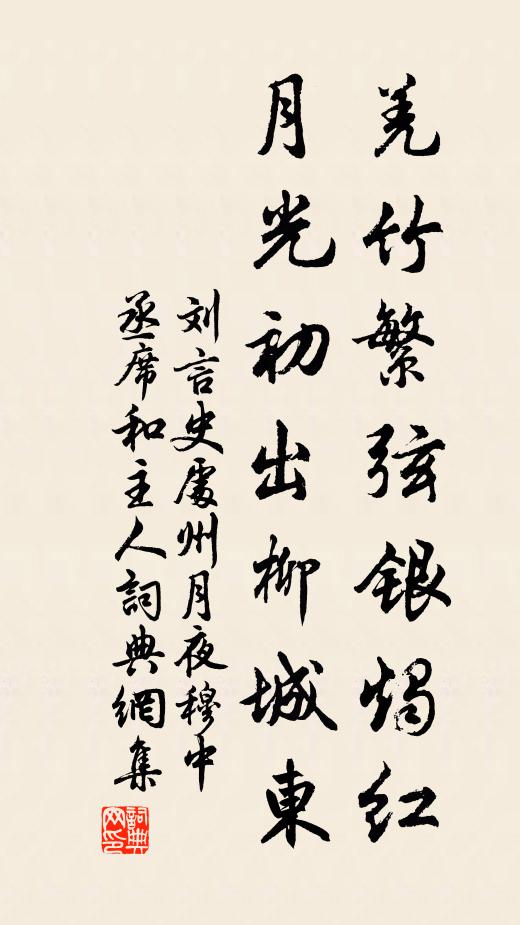 羌竹繁弦銀燭红
月光初出柳城東
刘言史處州月夜穆中
丞席和主人詞典網集
詞典网印